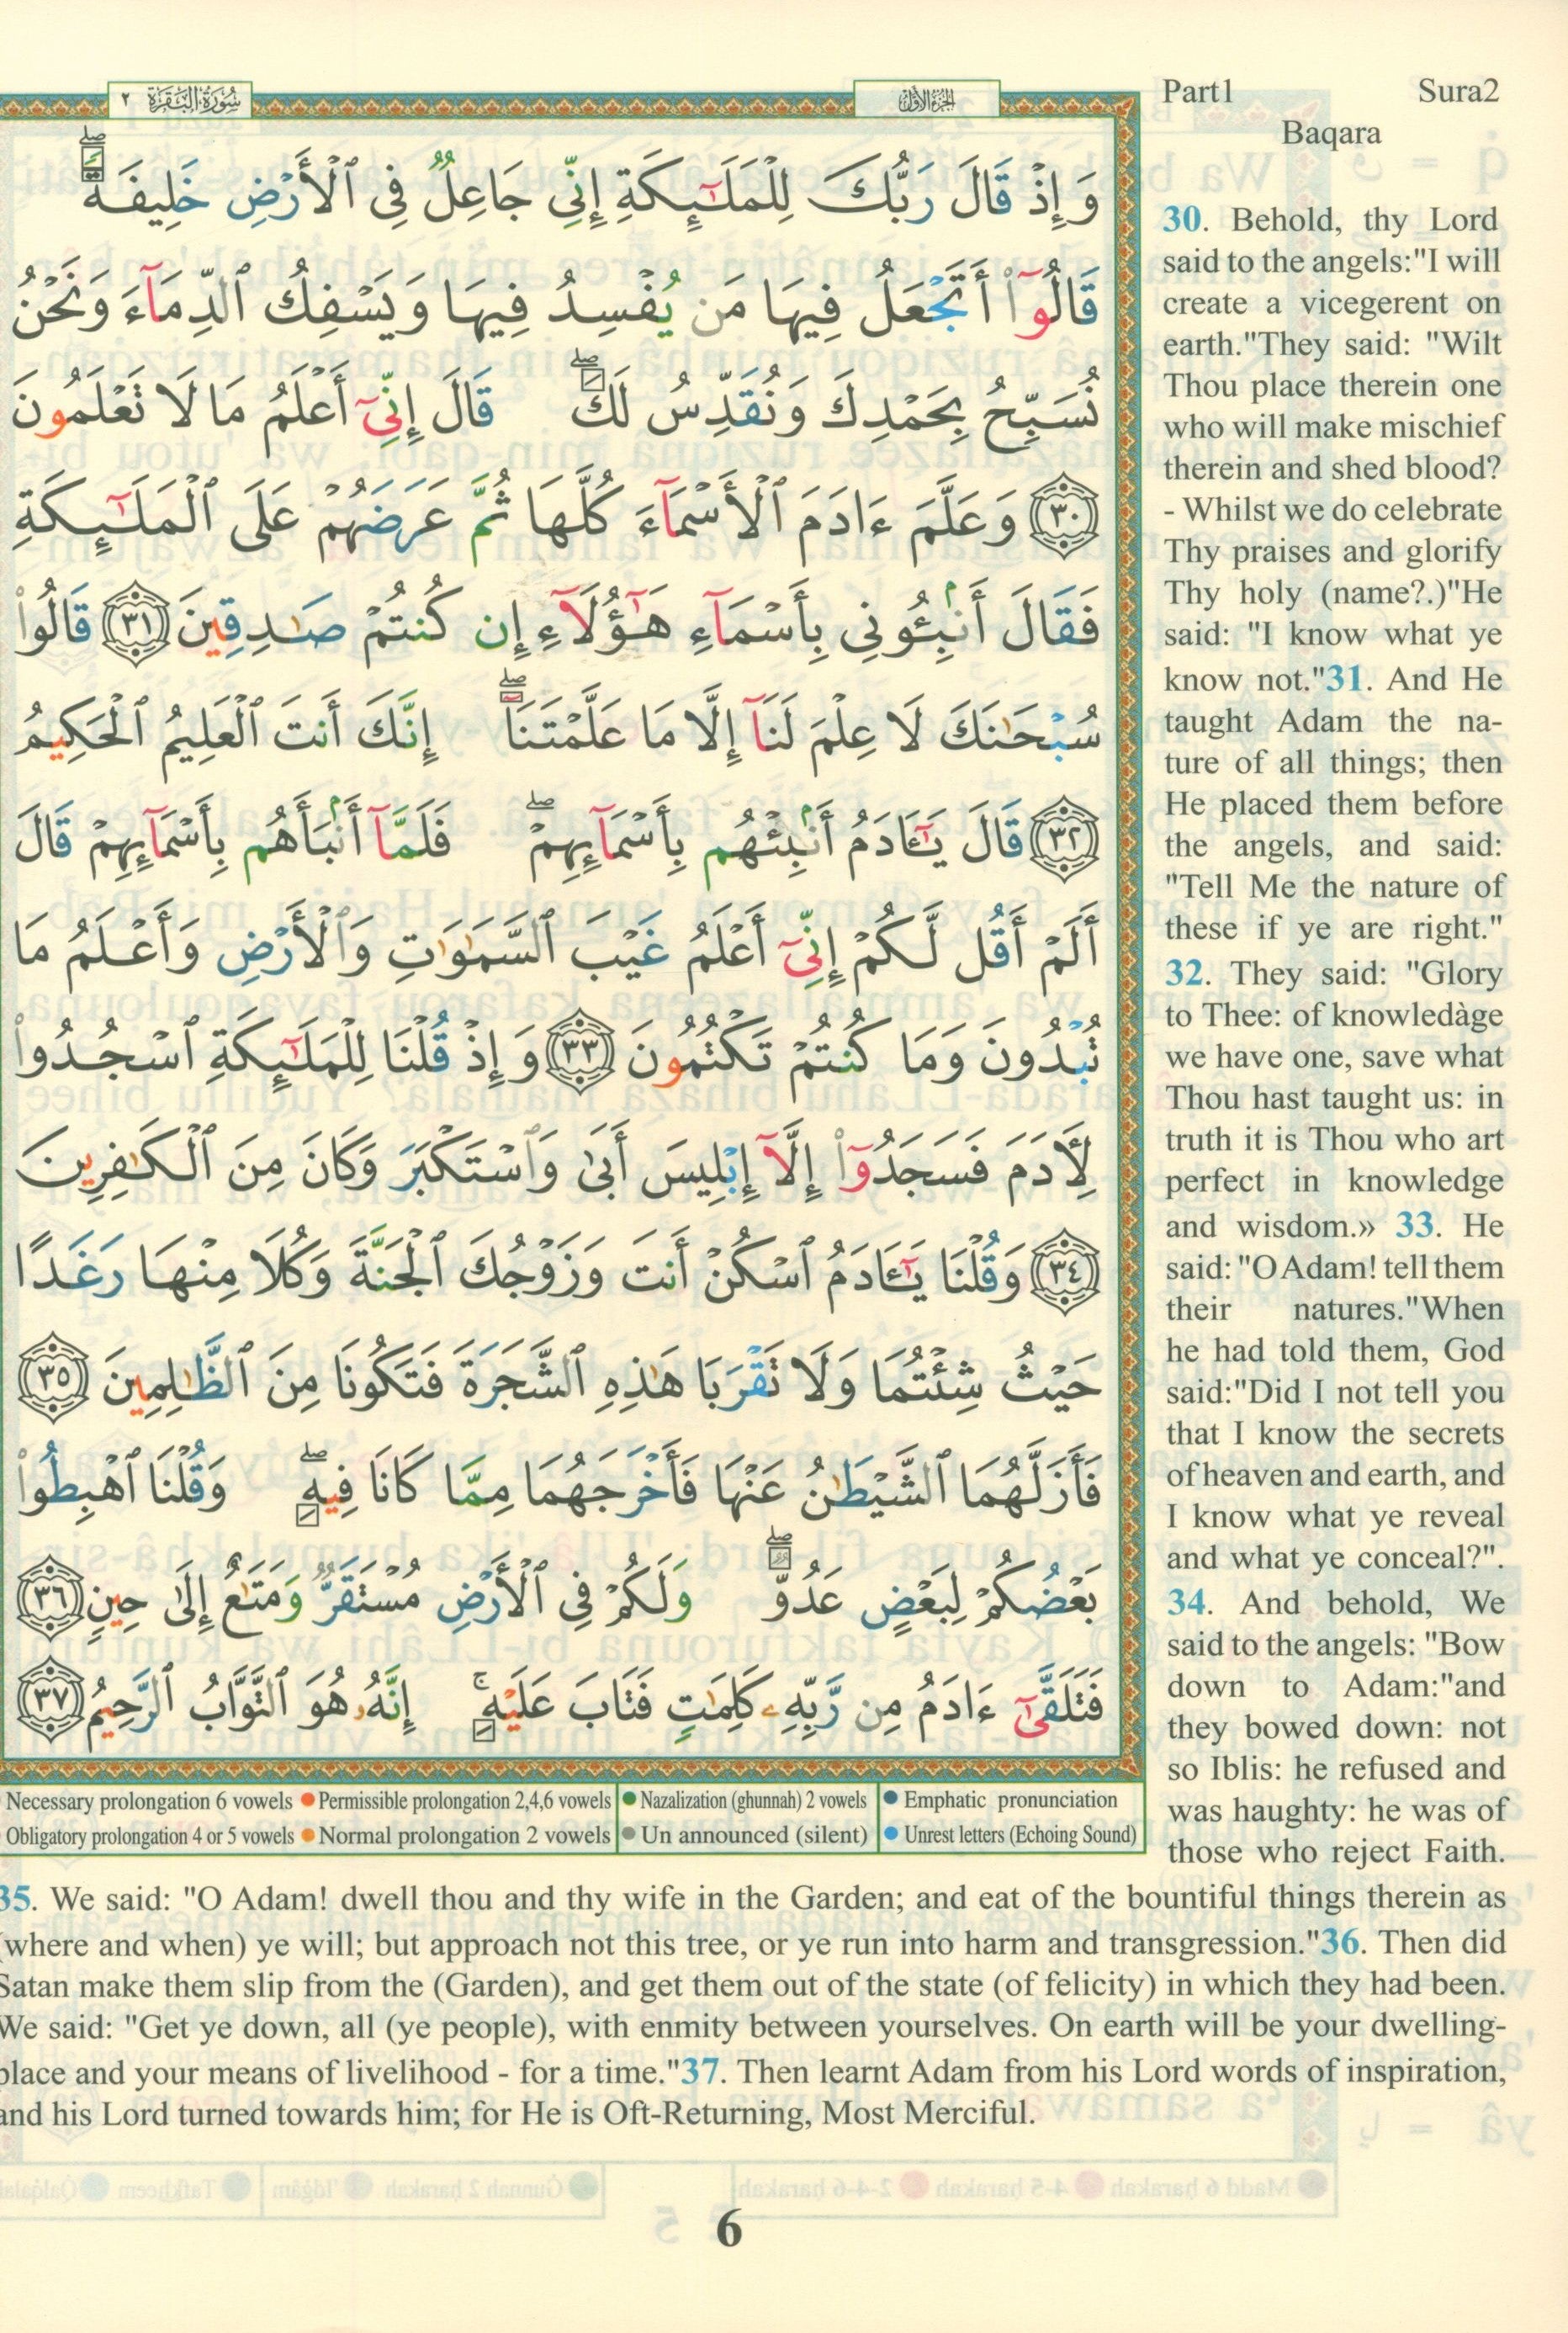 سُورَةُ الْبَقَرَةِ ٢
الجزء الأول
Part1 Sura2
Baqara
وَإِذْ قَالَ رَبُّكَ لِلْمَلَـٰٓئِكَةِ إِنِّى جَاعِلٌ فِى ٱلْأَرْضِ خَلِيفَةً ۖ
قَالُوٓا۟ أَتَجْعَلُ فِيهَا مَن يُفْسِدُ فِيهَا وَيَسْفِكُ ٱلدِّمَآءَ وَنَحْنُ
نُسَبِّحُ بِحَمْدِكَ وَنُقَدِّسُ لَكَ ۖ قَالَ إِنِّىٓ أَعْلَمُ مَا لَا تَعْلَمُونَ
٣٠ وَعَلَّمَ ءَادَمَ ٱلْأَسْمَآءَ كُلَّهَا ثُمَّ عَرَضَهُمْ عَلَى ٱلْمَلَـٰٓئِكَةِ
فَقَالَ أَنۢبِـُٔونِى بِأَسْمَآءِ هَـٰٓؤُلَآءِ إِن كُنتُمْ صَـٰدِقِينَ ٣١ قَالُوا۟
سُبْحَـٰنَكَ لَا عِلْمَ لَنَآ إِلَّا مَا عَلَّمْتَنَآ ۖ إِنَّكَ أَنتَ ٱلْعَلِيمُ ٱلْحَكِيمُ
٣٢ قَالَ يَـٰٓـَٔادَمُ أَنۢبِئْهُم بِأَسْمَآئِهِمْ ۖ فَلَمَّآ أَنۢبَأَهُم بِأَسْمَآئِهِمْ قَالَ
أَلَمْ أَقُل لَّكُمْ إِنِّىٓ أَعْلَمُ غَيْبَ ٱلسَّمَـٰوَٰتِ وَٱلْأَرْضِ وَأَعْلَمُ مَا
تُبْدُونَ وَمَا كُنتُمْ تَكْتُمُونَ ٣٣ وَإِذْ قُلْنَا لِلْمَلَـٰٓئِكَةِ ٱسْجُدُوا۟
لِـَٔادَمَ فَسَجَدُوٓا۟ إِلَّآ إِبْلِيسَ أَبَىٰ وَٱسْتَكْبَرَ وَكَانَ مِنَ ٱلْكَـٰفِرِينَ
٣٤ وَقُلْنَا يَـٰٓـَٔادَمُ ٱسْكُنْ أَنتَ وَزَوْجُكَ ٱلْجَنَّةَ وَكُلَا مِنْهَا رَغَدًا
حَيْثُ شِئْتُمَا وَلَا تَقْرَبَا هَـٰذِهِ ٱلشَّجَرَةَ فَتَكُونَا مِنَ ٱلظَّـٰلِمِينَ ٣٥
فَأَزَلَّهُمَا ٱلشَّيْطَـٰنُ عَنْهَا فَأَخْرَجَهُمَا مِمَّا كَانَا فِيهِ ۖ وَقُلْنَا ٱهْبِطُوا۟
بَعْضُكُمْ لِبَعْضٍ عَدُوٌّ ۖ وَلَكُمْ فِى ٱلْأَرْضِ مُسْتَقَرٌّ وَمَتَـٰعٌ إِلَىٰ حِينٍ ٣٦
فَتَلَقَّىٰٓ ءَادَمُ مِن رَّبِّهِۦ كَلِمَـٰتٍ فَتَابَ عَلَيْهِ ۚ إِنَّهُۥ هُوَ ٱلتَّوَّابُ ٱلرَّحِيمُ ٣٧
30. Behold, thy Lord
said to the angels:"I will
create a vicegerent on
earth."They said: "Wilt
Thou place therein one
who will make mischief
therein and shed blood?
- Whilst we do celebrate
Thy praises and glorify
Thy holy (name?.)"He
said: "I know what ye
know not."31. And He
taught Adam the na-
ture of all things; then
He placed them before
the angels, and said:
"Tell Me the nature of
these if ye are right."
32. They said: "Glory
to Thee: of knowledàge
we have one, save what
Thou hast taught us: in
truth it is Thou who art
perfect in knowledge
and wisdom.» 33. He
said: "O Adam! tell them
their natures."When
he had told them, God
said:"Did I not tell you
that I know the secrets
of heaven and earth, and
I know what ye reveal
and what ye conceal?".
34. And behold, We
said to the angels: "Bow
down to Adam:"and
they bowed down: not
so Iblis: he refused and
was haughty: he was of
those who reject Faith.
Necessary prolongation 6 vowels Permissible prolongation 2,4,6 vowels Nazalization (ghunnah) 2 vowels Emphatic pronunciation
Obligatory prolongation 4 or 5 vowels Normal prolongation 2 vowels Un announced (silent) Unrest letters (Echoing Sound)
35. We said: "O Adam! dwell thou and thy wife in the Garden; and eat of the bountiful things therein as
(where and when) ye will; but approach not this tree, or ye run into harm and transgression."36. Then did
Satan make them slip from the (Garden), and get them out of the state (of felicity) in which they had been.
We said: "Get ye down, all (ye people), with enmity between yourselves. On earth will be your dwelling-
place and your means of livelihood - for a time."37. Then learnt Adam from his Lord words of inspiration,
and his Lord turned towards him; for He is Oft-Returning, Most Merciful.
6